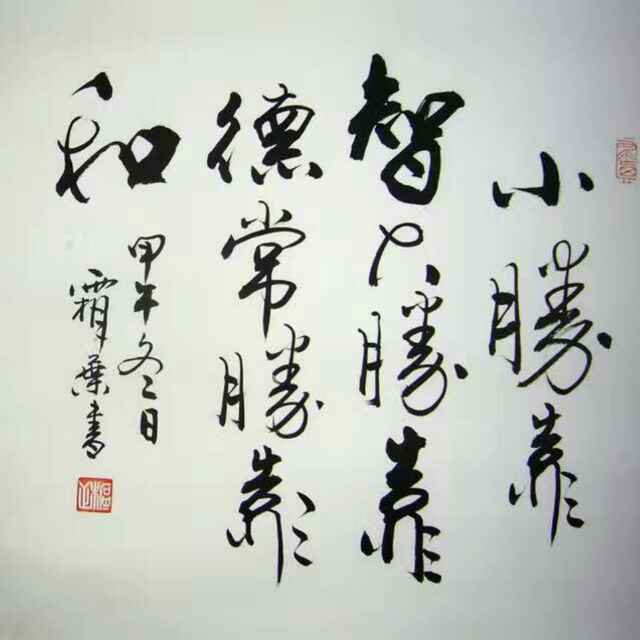 小勝靠
智大勝靠
德常勝靠
和
甲午冬日
霜葉書